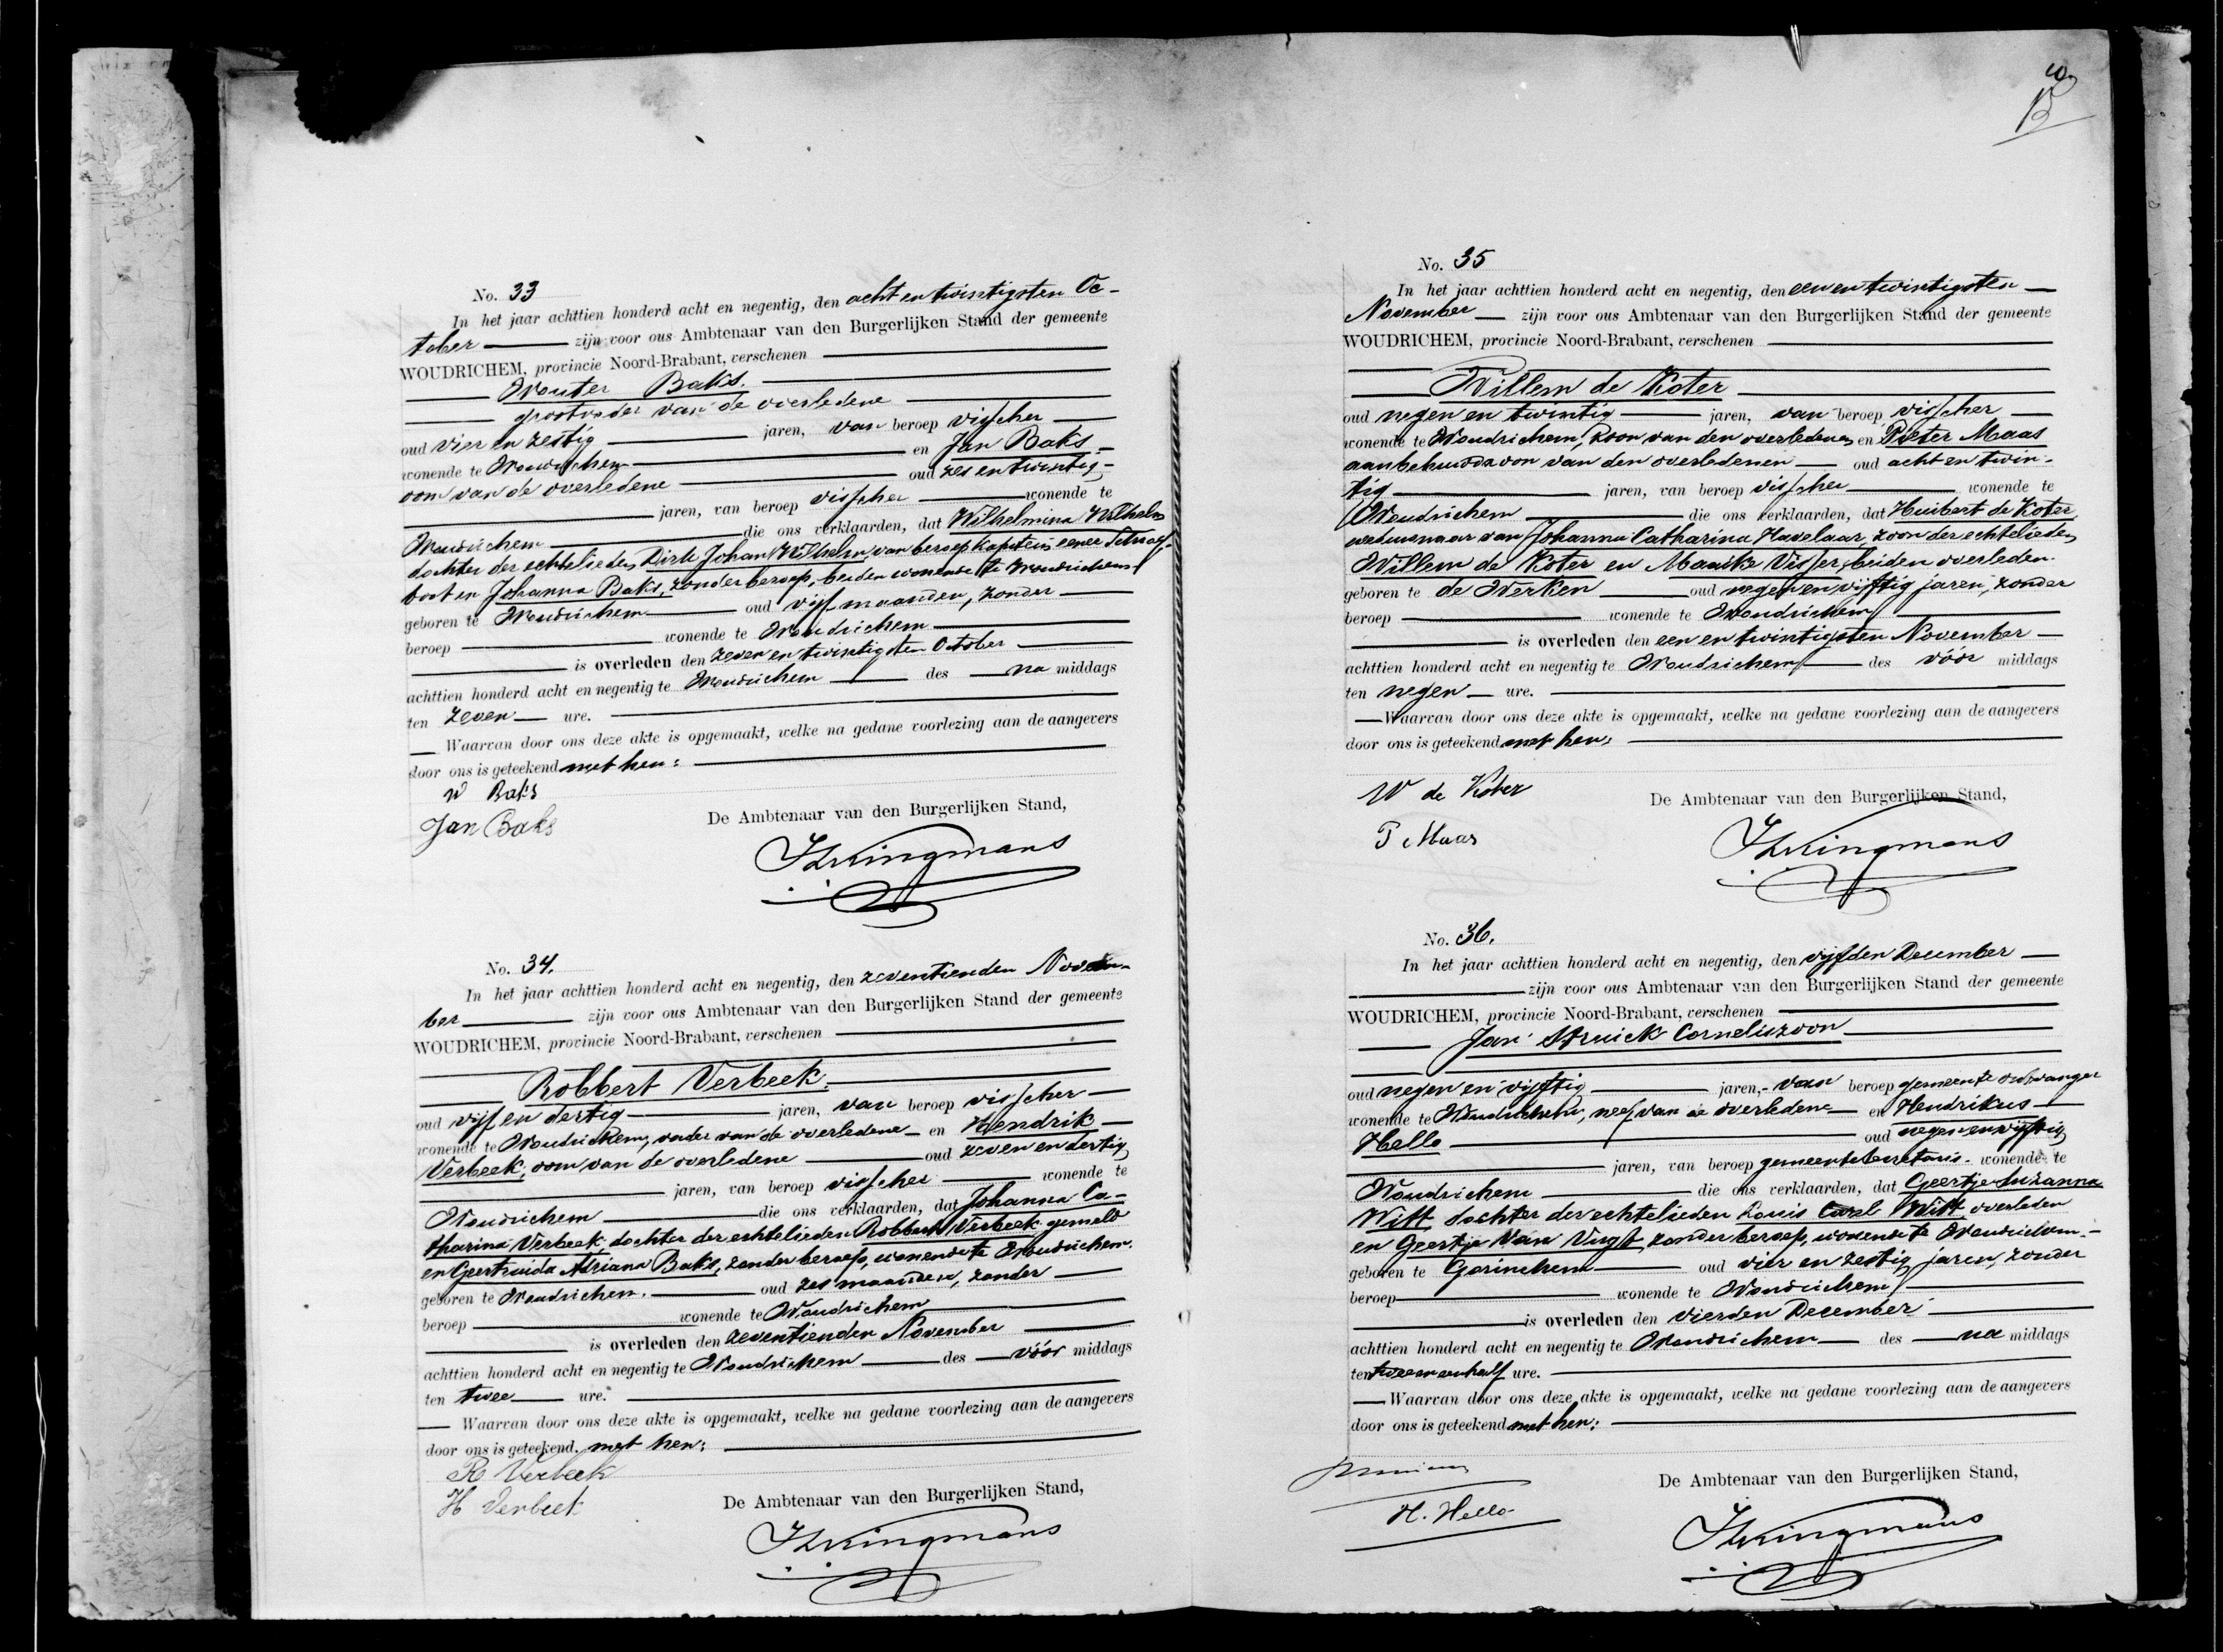 No. 33
In het jaar achttien honderd acht en negentig, den acht en twintigsten Oc-
tober zijn voor ons Ambtenaar van den Burgerlijken Stand der gemeente
WOUDRICHEM, provincie Noord-Brabant, verschenen
Wouter Baks.
grootvader van de overledene
oud vier en zestig jaren, van beroep visscher
wonende te Woudrichem en Jan Baks
oom van de overledene oud zes en twintig
jaren, van beroep visscher wonende te
Woudrichem die ons verklaarden, dat Wilhelmina Wilhelm
dochter der echtelieden Dirk Johan Wilhelm, van beroep kapitein eener
boot en Johanna Baks, zonder beroep, beiden wonende te Woudrichem
geboren te Woudrichem oud vijf maanden, zonder
beroep wonende te Woudrichem
is overleden den zeven en twintigsten October
achttien honderd acht en negentig te Woudrichem des na middags
ten zeven ure.
Waarvan door ons deze akte is opgemaakt, welke na gedane voorlezing aan de aangevers
door ons is geteekend met hen:
W Baks
Jan Baks
De Ambtenaar van den Burgerlijken Stand,
No. 34.
In het jaar achttien honderd acht en negentig, den zeventienden Novem-
ber zijn voor ons Ambtenaar van den Burgerlijken Stand der gemeente
WOUDRICHEM, provincie Noord-Brabant, verschenen
Robbert Verbeek.
oud vijf en dertig jaren, van beroep visscher
wonende te Woudrichem, vader van de overledene en Hendrik
Verbeek, oom van de overledene oud zeven en dertig
jaren, van beroep visscher wonende te
Woudrichem die ons verklaarden, dat Johanna Ca-
tharina Verbeek, dochter der echtelieden Robbert Verbeek gemeld
en Geertruida Adriana Baks, zonder beroep, wonende te Woudrichem.
geboren te Woudrichem. oud zes maanden, zonder
beroep wonende te Woudrichem
is overleden den zeventienden November
achttien honderd acht en negentig te Woudrichem des vóór middags
ten twee ure.
Waarvan door ons deze akte is opgemaakt, welke na gedane voorlezing aan de aangevers
door ons is geteekend. met hen:
R Verbeek
H Verbeek
De Ambtenaar van den Burgerlijken Stand,
No. 35
In het jaar achttien honderd acht en negentig, den een en twintigsten
November zijn voor ons Ambtenaar van den Burgerlijken Stand der gemeente
WOUDRICHEM, provincie Noord-Brabant, verschenen
Willem de Koter
oud negen en twintig jaren, van beroep visscher
wonende te Woudrichem, zoon van den overledenen en Pieter Maas
aanbehuwdzoon van den overledenen oud acht en twin-
tig jaren, van beroep visscher wonende te
Woudrichem die ons verklaarden, dat Huibert de Koter
weduwnaar van Johanna Catharina Havelaar, zoon der echtelieden
Willem de Koter en Maaike Visser, beiden overleden.
geboren te de Werken oud negen en vijftig jaren, zonder
beroep wonende te Woudrichem
is overleden den een en twintigsten November
achttien honderd acht en negentig te Woudrichem des vóór middags
ten negen ure.
Waarvan door ons deze akte is opgemaakt, welke na gedane voorlezing aan de aangevers
door ons is geteekend met hen:
W de Koter
P Maas
De Ambtenaar van den Burgerlijken Stand,
No. 36.
In het jaar achttien honderd acht en negentig, den vijfden December
zijn voor ons Ambtenaar van den Burgerlijken Stand der gemeente
WOUDRICHEM, provincie Noord-Brabant, verschenen
Jan Struick Corneliszoon
oud negen en vijftig jaren, van beroep gemeente ontvanger
wonende te Woudrichem, neef van de overledene en Hendrikus
Hello oud negen en vijftig
jaren, van beroep gemeentesecretaris wonende te
Woudrichem die ons verklaarden, dat Geertje Suzanna
Witt, dochter der echtelieden Louis Carel Witt overleden
en Geertje van Vugt, zonder beroep, wonende te Woudrichem.
geboren te Gorinchem oud vier en zestig jaren, zonder
beroep wonende te Woudrichem
is overleden den vierden December
achttien honderd acht en negentig te Woudrichem des na middags
ten twee en een half ure.
Waarvan door ons deze akte is opgemaakt, welke na gedane voorlezing aan de aangevers
door ons is geteekend met hen:
H. Hello
De Ambtenaar van den Burgerlijken Stand,